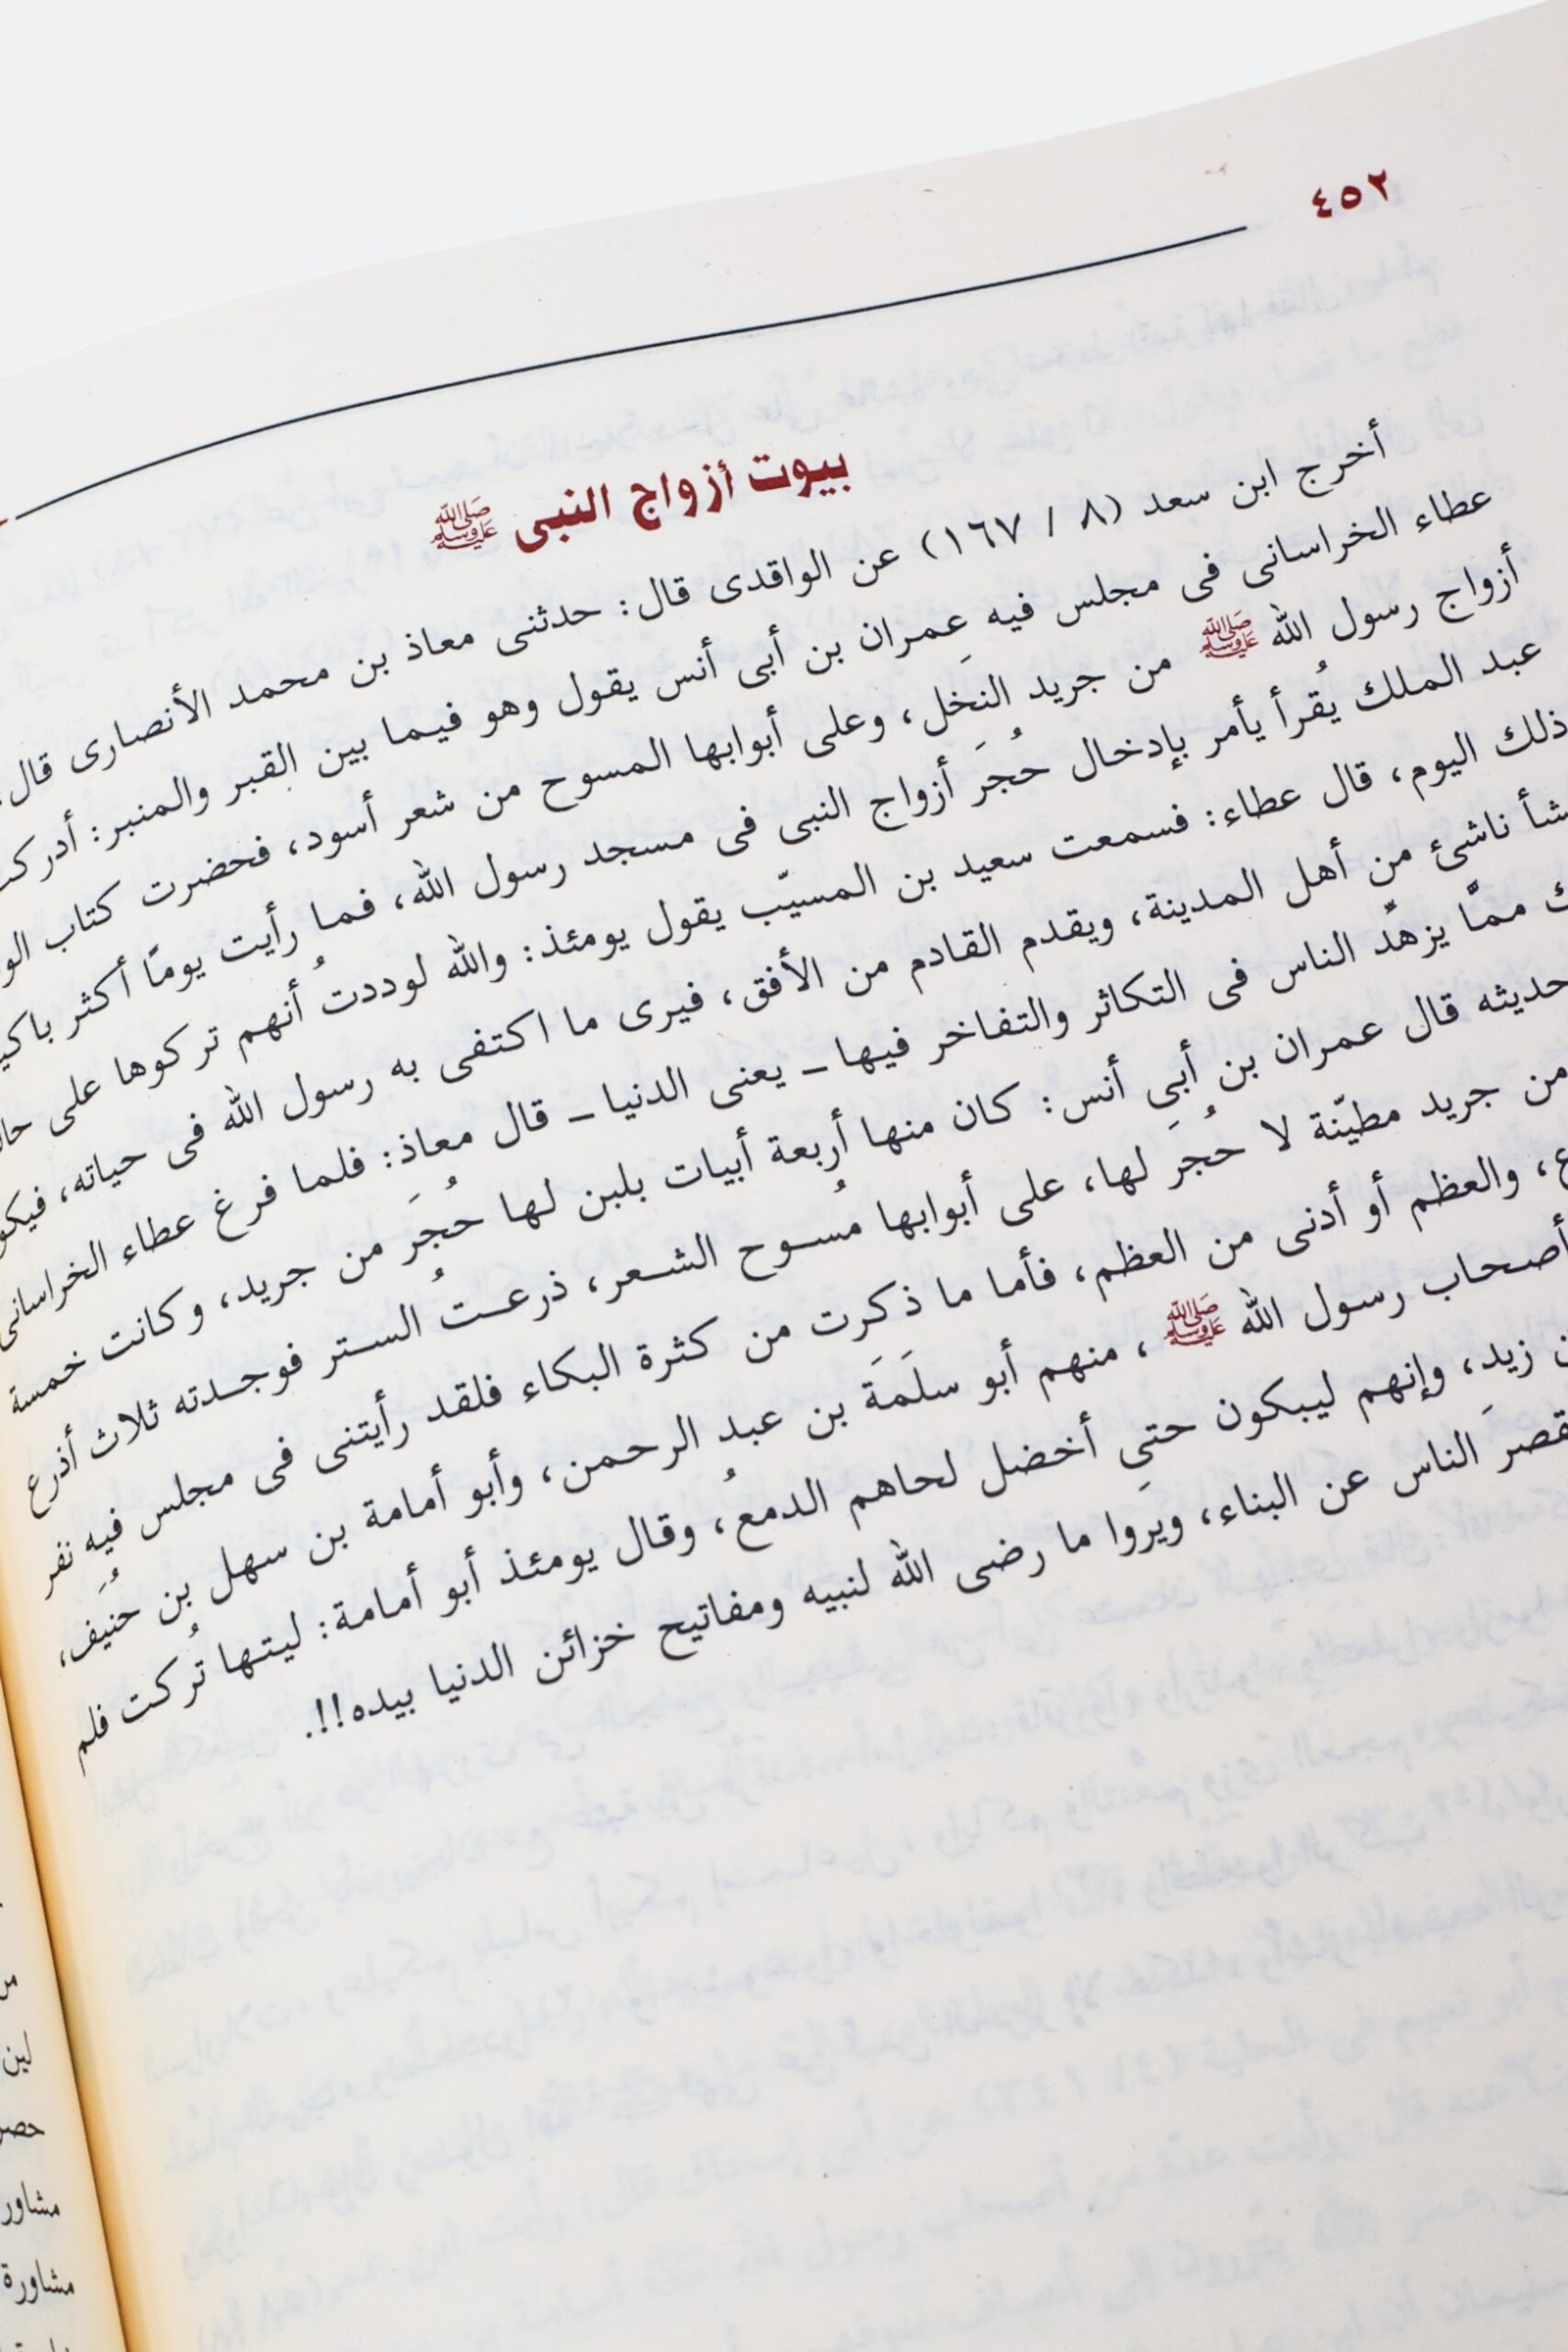 ٤٥٢
بيوت أزواج النبى ﷺ
أخرج ابن سعد (٨ / ١٦٧) عن الواقدى قال: حدثنى معاذ بن محمد الأنصارى قال:
عطاء الخراسانى فى مجلس فيه عِمران بن أبى أنس يقول وهو فيما بين القبر والمنبر:
أزواج رسول الله ﷺ من جريد النخل، وعلى أبوابها المسوح من شعر أسود، فحضرت كتاب
عبد الملك يُقرأ يأمر بإدخال حُجَر أزواج النبى فى مسجد رسول الله، فما رأيت يومًا أكثر
ذلك اليوم، قال عطاء: فسمعت سعيد بن المسيّب يقول يومئذ: والله لوددتُ أنهم تركوها على
ناشئ من أهل المدينة، ويقدم القادم من الأفق، فيرى ما اكتفى به رسول الله فى حياته،
ممّا يزهّد الناس فى التكاثر والتفاخر فيها ـ يعنى الدنيا ـ قال معاذ: فلما فرغ عطاء الخراسانى
حديثه قال عمران بن أبِى أنس: كان منها أربعة أبيات بلبن لها حُجَر من جريد، وكانت خمسة
من جريد مطيّنة لا حُجَر لها، على أبوابها مُسوح الشعر، ذرعتُ الستر فوجدته ثلاث أذرع
والعظم أو أدنى من العظم، فأما ما ذكرت من كثرة البكاء فلقد رأيتنى فى مجلس فيه نفر
أصحاب رسول الله ﷺ، منهم أبو سلَمَة بن عبد الرحمن، وأبو أمامة بن سهل بن حُنَيف،
زيد، وإنهم ليبكون حتى أخضل لحاهم الدمعُ، وقال يومئذ أبو أمامة: ليتها تُركت فلم
الناس عن البناء، ويَروا ما رضى الله لنبيه ومفاتيح خزائن الدنيا بيده!!.
لين
مشاور
مشاورة